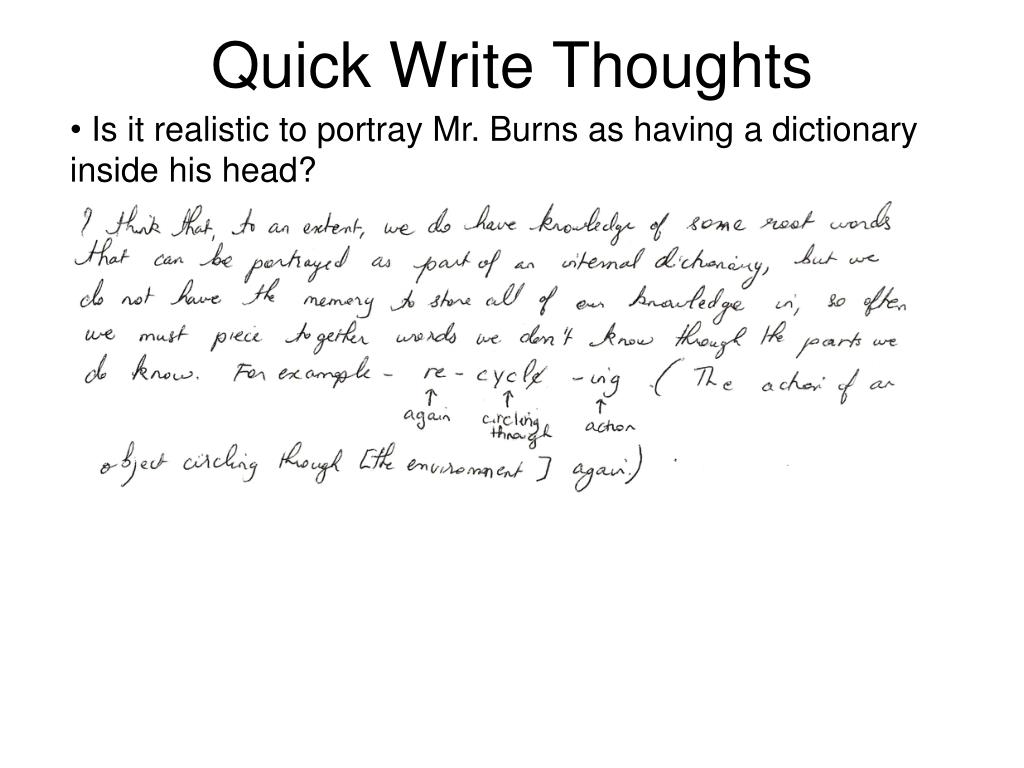 Quick Write Thoughts
• Is it realistic to portray Mr. Burns as having a dictionary
inside his head?
I think that, to an extent, we do have knowledge of some root words
that can be portrayed as part of an internal dictionary, but we
do not have the memory to store all of our knowledge in, so often
we must piece together words we don't know through the parts we
do know. For example - re - cycle - ing . ( The action of an
↑ ↑ ↑
again circling action
through
object circling through [the environment] again.)